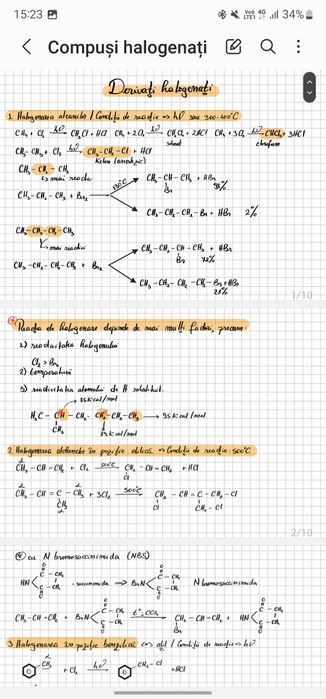 15:23 Voll LTE1 4G 34%
Compuși halogenați
Derivați halogenați
1. Halogenarea alcanilor / Condiții de reacție => hν sau 300-400°C
CH₄ + Cl₂ hν CH₃Cl + HCl CH₄ + 2Cl₂ hν CH₂Cl₂ + 2HCl CH₄ + 3Cl₂ hν CHCl₃ + 3HCl
cloroform
CH₃-CH₃ + Cl₂ hν CH₃-CH₂-Cl + HCl
Kelen (anestezic)
CH₃-CH₂-CH₃
mai reactiv
CH₃-CH-CH₃ + HBr
Br 98%
CH₃-CH₂-CH₃ + Br₂
CH₃-CH₂-CH₂-Br + HBr 2%
CH₃-CH₂-CH₂-CH₃
mai reactivi
CH₃-CH₂-CH-CH₃ + HBr
Br
CH₃-CH₂-CH₂-CH₃ + Br₂
CH₃-CH₂-CH₂-CH₂-Br + HBr
1/10
Reacția de halogenare depinde de mai mulți factori, precum:
1) reactivitatea halogenului
Cl₂ > Br₂
2) temperatura
3) reactivitatea atomului de H substituit.
H₃C-CH-CH₂-CH₂-CH₃
CH₃
2. Halogenarea alchenelor în poziție alilică => Condiții de reacție: 500°C
CH₃-CH=CH₂ + Cl₂ 500°C CH₂-CH=CH₂ + HCl
Cl
CH₃-CH=C-CH₃ + 3Cl₂ 500°C CH₂-CH=C-CH₂-Cl
CH₃ Cl CH₂-Cl
2/10
cu N bromosuccinimida (NBS)
HN succinimida BrN N bromosuccinimida
CH₃-CH=CH₂ + BrN CH₂-CH=CH₂ + HN
Br
3. Halogenarea în poziție benzilică / Condiții de reacție => hν
CH₃ + Cl₂ hν CH₂-Cl + HCl